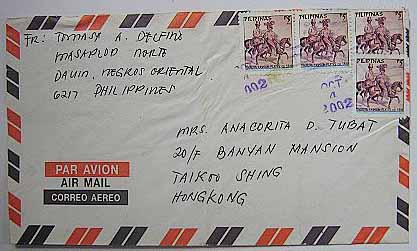 FR: TOMASA A. DELFINO
MASAPLOD NORTE
DAUIN, NEGROS ORIENTAL
6217 PHILIPPINES
PILIPINAS
PILIPINAS
PILIPINAS
PILIPINAS
2002
OCT
2002
MRS. ANACORITA D. TUBAT
20/F BANYAN MANSION
TAIKOO SHING
HONGKONG
PAR AVION
AIR MAIL
CORREO AEREO